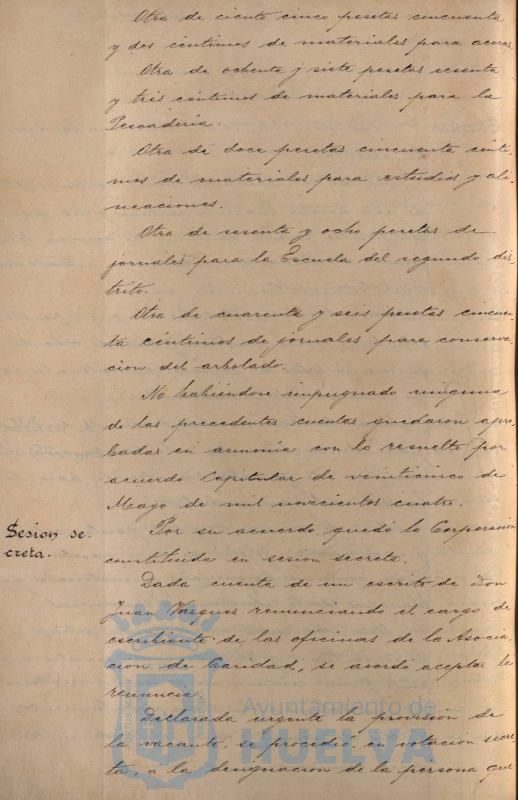 Otra de ciento cinco pesetas cincuenta
y dos céntimos de materiales para aceras.
Otra de ochenta y siete pesetas sesenta
y tres céntimos de materiales para la
Pescadería.
Otra de doce pesetas cincuenta cénti
mos de materiales para estudios y ali
neaciones.
Otra de sesenta y ocho pesetas de
jornales para la Escuela del segundo dis
trito.
Otra de cuarenta y seis pesetas cincuen
ta céntimos de jornales para conserva
cion del arbolado.
No habiéndose impugnado ninguna
de las precedentes cuentas quedaron apro
badas en armonía con lo resuelto por
acuerdo Capitular de veinticinco de
Mayo de mil novecientos cuatro.
Sesion se-
creta.
Por su acuerdo quedó la Corporacion
constituida en sesion secreta.
Dada cuenta de un escrito de Don
Juan Vazques renunciando el cargo de
escribiente de las oficinas de la Asocia
cion de Caridad, se acordó aceptar la
renuncia.
Declarada urgente la provision de
la vacante, se procedió en votacion secre
ta, a la designacion de la persona que
Ayuntamiento de
HUELVA